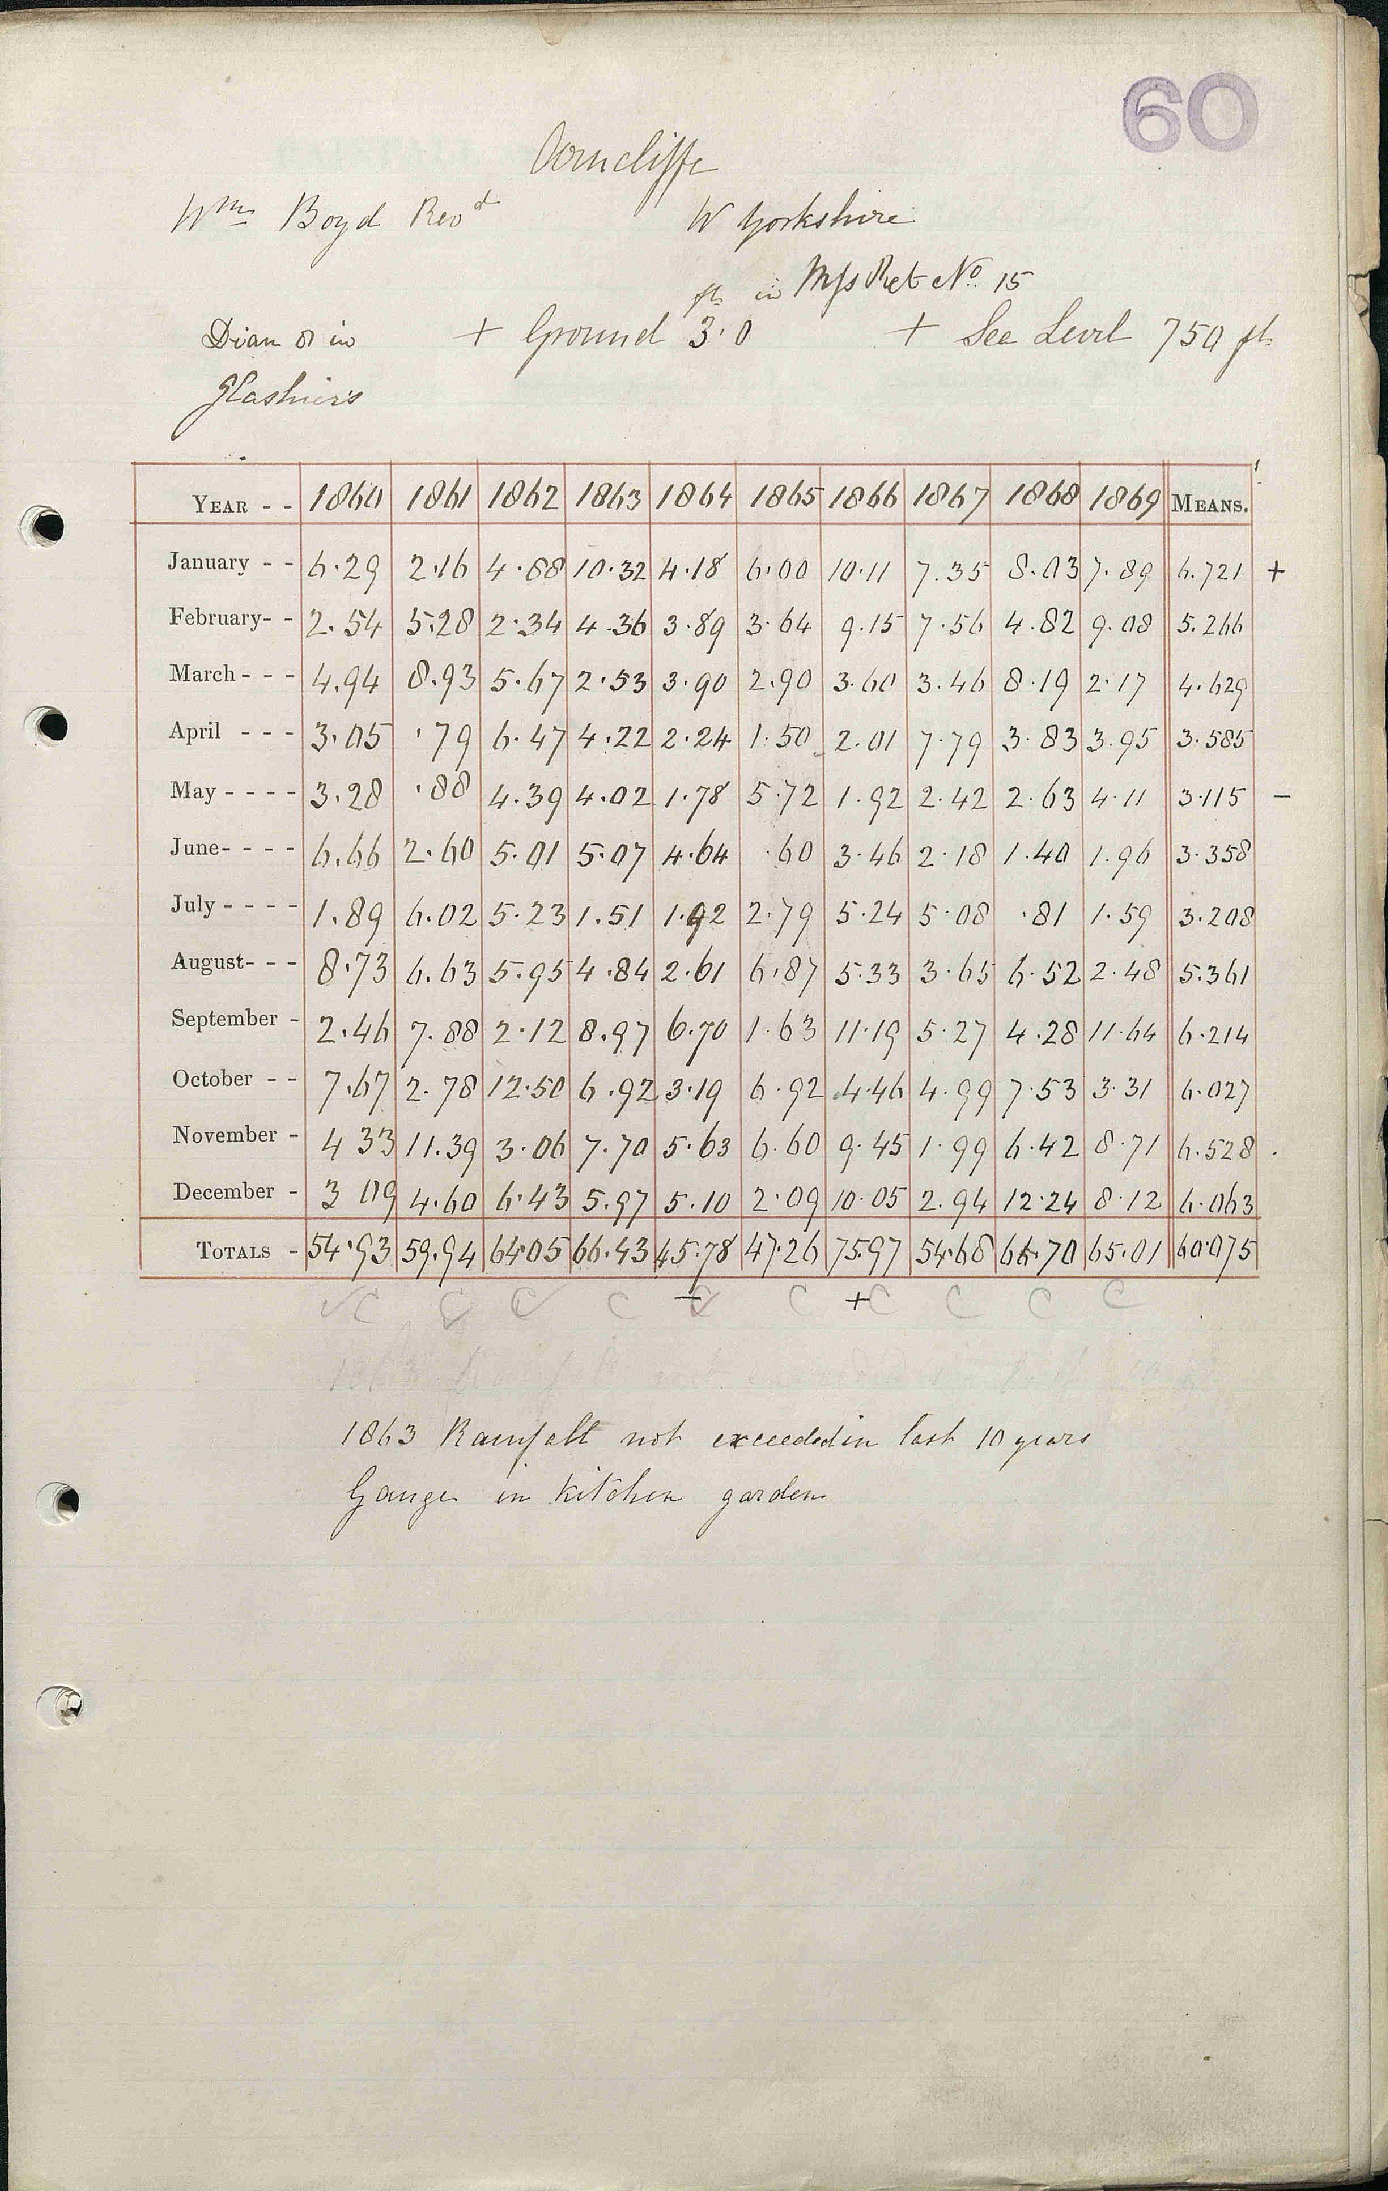 60
Arncliffe
Wm Boyd Revd W Yorkshire
ft in Mss Ret No. 15
Diam 8 in + Ground 3.0 + Sea Level 750 ft
Glashiers
YEAR - - 1860 1861 1862 1863 1864 1865 1866 1867 1868 1869 MEANS.
January - - 6.29 2.16 4.88 10.32 4.18 6.00 10.11 7.35 8.03 7.89 6.721 +
February- - 2.54 5.28 2.34 4.36 3.89 3.64 9.15 7.56 4.82 9.08 5.266
March - - - 4.94 8.93 5.67 2.53 3.90 2.90 3.60 3.46 8.19 2.17 4.629
April - - - 3.05 .79 6.47 4.22 2.24 1.50 2.01 7.79 3.83 3.95 3.585
May - - - - 3.28 .88 4.39 4.02 1.78 5.72 1.92 2.42 2.63 4.11 3.115 -
June- - - - 6.66 2.60 5.01 5.07 4.64 .60 3.46 2.18 1.40 1.96 3.358
July - - - - 1.89 6.02 5.23 1.51 1.92 2.79 5.24 5.08 .81 1.59 3.208
August- - - 8.73 6.63 5.95 4.84 2.61 6.87 5.33 3.65 6.52 2.48 5.361
September - 2.46 7.88 2.12 8.97 6.70 1.63 11.19 5.27 4.28 11.64 6.214
October - - 7.67 2.78 12.50 6.92 3.19 6.92 4.46 4.99 7.53 3.31 6.027
November - 4 33 11.39 3.06 7.70 5.63 6.60 9.45 1.99 6.42 8.71 6.528
December - 3 09 4.60 6.43 5.97 5.10 2.09 10.05 2.94 12.24 8.12 6.063
TOTALS - 54.93 59.94 64.05 66.43 45.78 47.26 75.97 54.68 66.70 65.01 60.075
C C C C C C + C C C C
1863 Rainfall not exceeded in last 10 years
Gauge in Kitchen garden